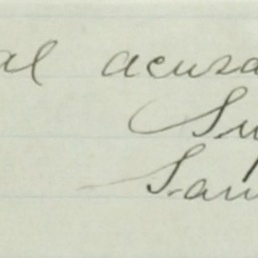 al acusa
Su
San